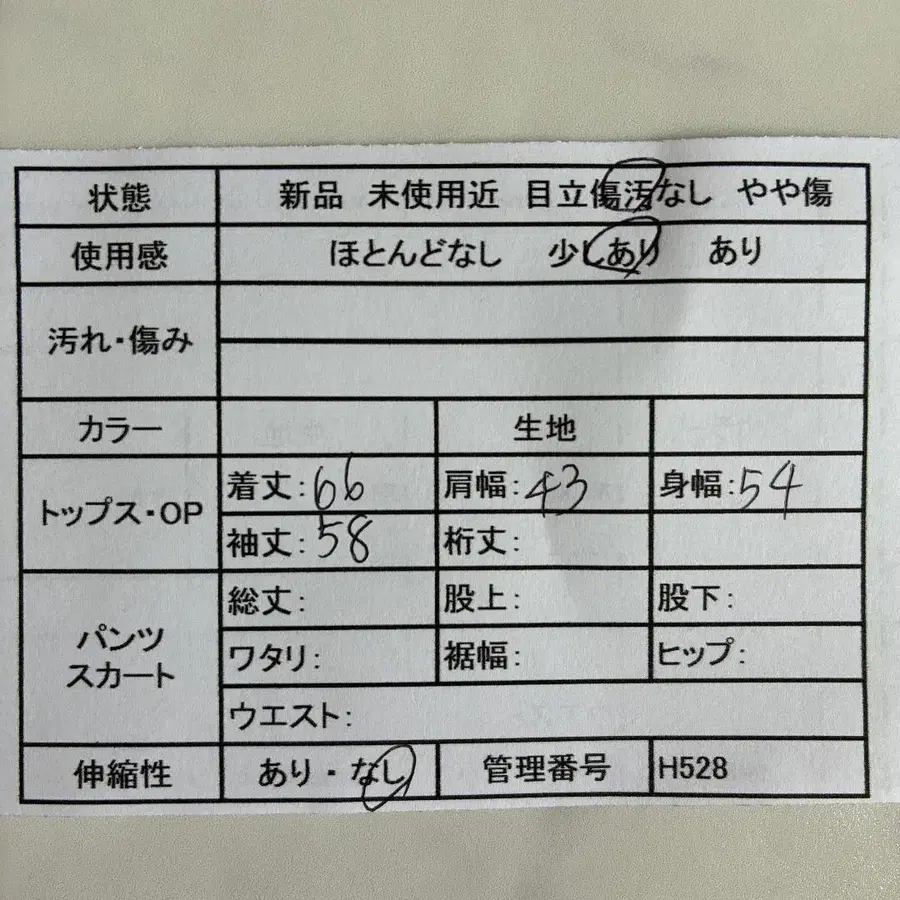 状態 新品 未使用近 目立傷汚なし やや傷
使用感 ほとんどなし 少しあり あり
汚れ・傷み
カラー 生地
トップス・OP 着丈:66 肩幅:43 身幅:54
袖丈:58 裄丈:
パンツ スカート 総丈: 股上: 股下:
ワタリ: 裾幅: ヒップ:
ウエスト:
伸縮性 あり・なし 管理番号 H528